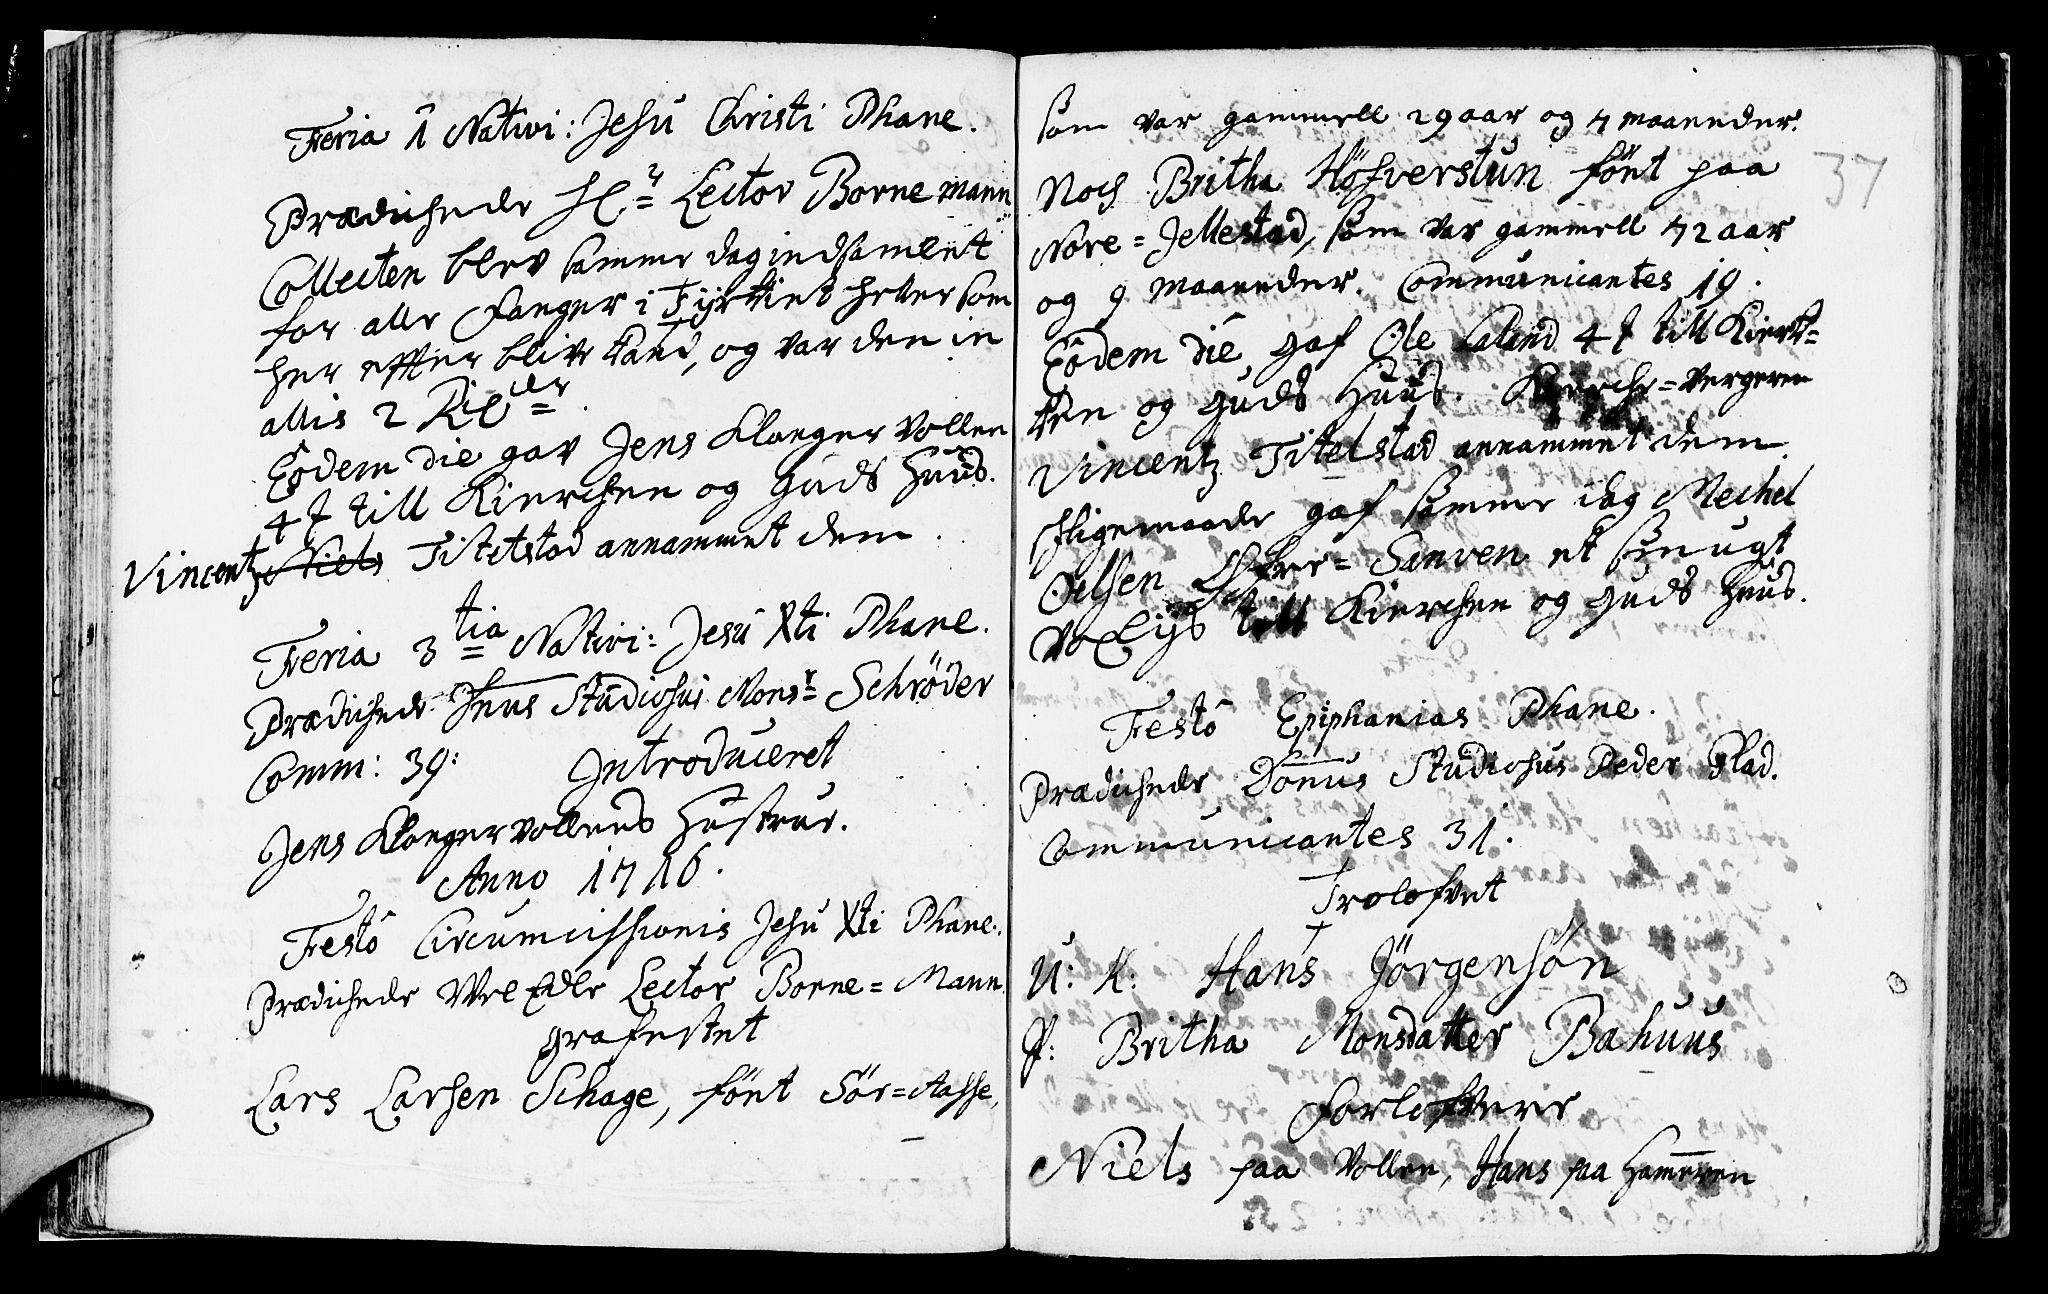 Feria 1 Nativi: Jesu Christi Phane.
Prædichede Hr= Lector Bornemann
Collecten blev samme dag indsamlent
for alle fanger i Tyrkiet heller som
her effter blive kand, og var den in
allis 2 Rixdlr=.
Eodem die gav Jens Klonger Vollen
4 ƚ till Kierchen og Guds Huus.
Vincentz Niels Titelstad annammet dem.
Feria 3tia= Nativi: Jesu Xti Phane.
Prædichede Dnus Studiosus Monsr= Schröder
Comm: 39: Introduceret
Jens Klongervollens Hustrue.
Anno 1716.
Festô Circumcissionis Jesu Xti Phane.
Prædichede VelEdle Lector Borne=Mann.
grafestet
Lars Larsen Schage, fönt Sör=Aasse,
37
som var gammell 29 aar og 7 maaneder.
Noch Britha Höfverstun fönt paa
Nore=Jellestad, som var gammell 72 aar
og 9 maaneder. Communicantes 19.
Eôdem die gaf Ole 4 ƚ till Kierk=
ken og Guds Huus. Kierche=Vergeren
Vincentz Titelstad annammet dem.
Ligemaade gaf samme idag Mechel
Olsen Öfre=Sanven et smugt
voxlys till Kierchen og Guds Huus.
Festô Epiphanias Phane.
Prædichede Domus Studiosus Peder Flad.
Communicantes 31.
Trolofvet
U: K: Hans Jörgensön
P: Britha Monsdatter Bahuus
forlofvere
Niels paa Vollen, Hans paa Hameren